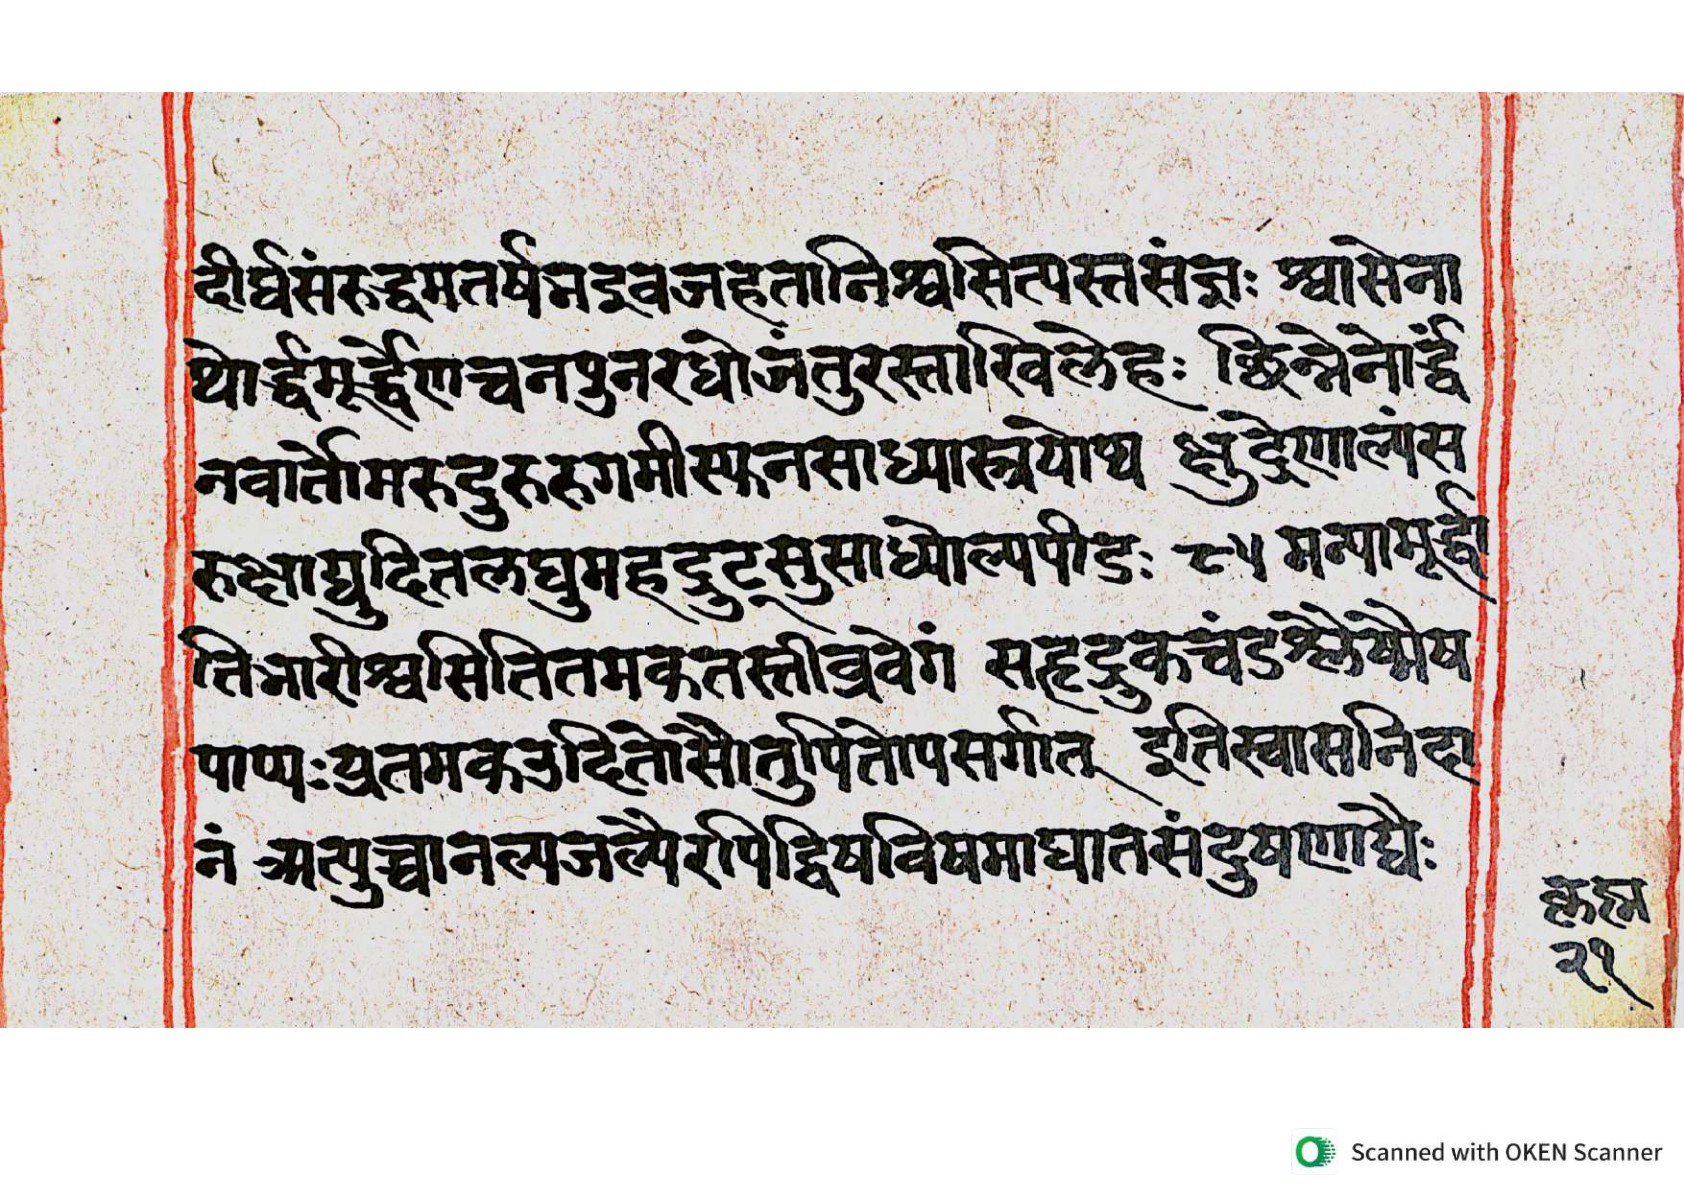 दीर्घसंरुद्धमतर्षभइवजहतानिश्वसित्यस्तसंज्ञः श्वासेना
थोर्द्धमूर्द्धेणचनपुनरधोजंतुरस्ताखिलेहः छिन्नेनोर्द्धं
नवार्तोमरुदुरुरुगमीस्यनसाध्यास्त्रयोप्य क्षुद्रेणाल्पंस
रुक्षाद्युदितलघुमहद्रुट्सुसाध्योल्पपीडः ८५ मन्यामूर्द्धा
तिभारीश्वसितितमकतस्तीव्रवेगं सहृद्रुकचंडश्लेष्मौष
पाप्यःप्रतमकउदितोसौतुपित्तोपसर्गात् इतिस्वासनिदा
नं अत्युच्चानल्पजल्पैरपिद्विषविषमाघातसंदुषणाद्यैः
२१
Scanned with OKEN Scanner